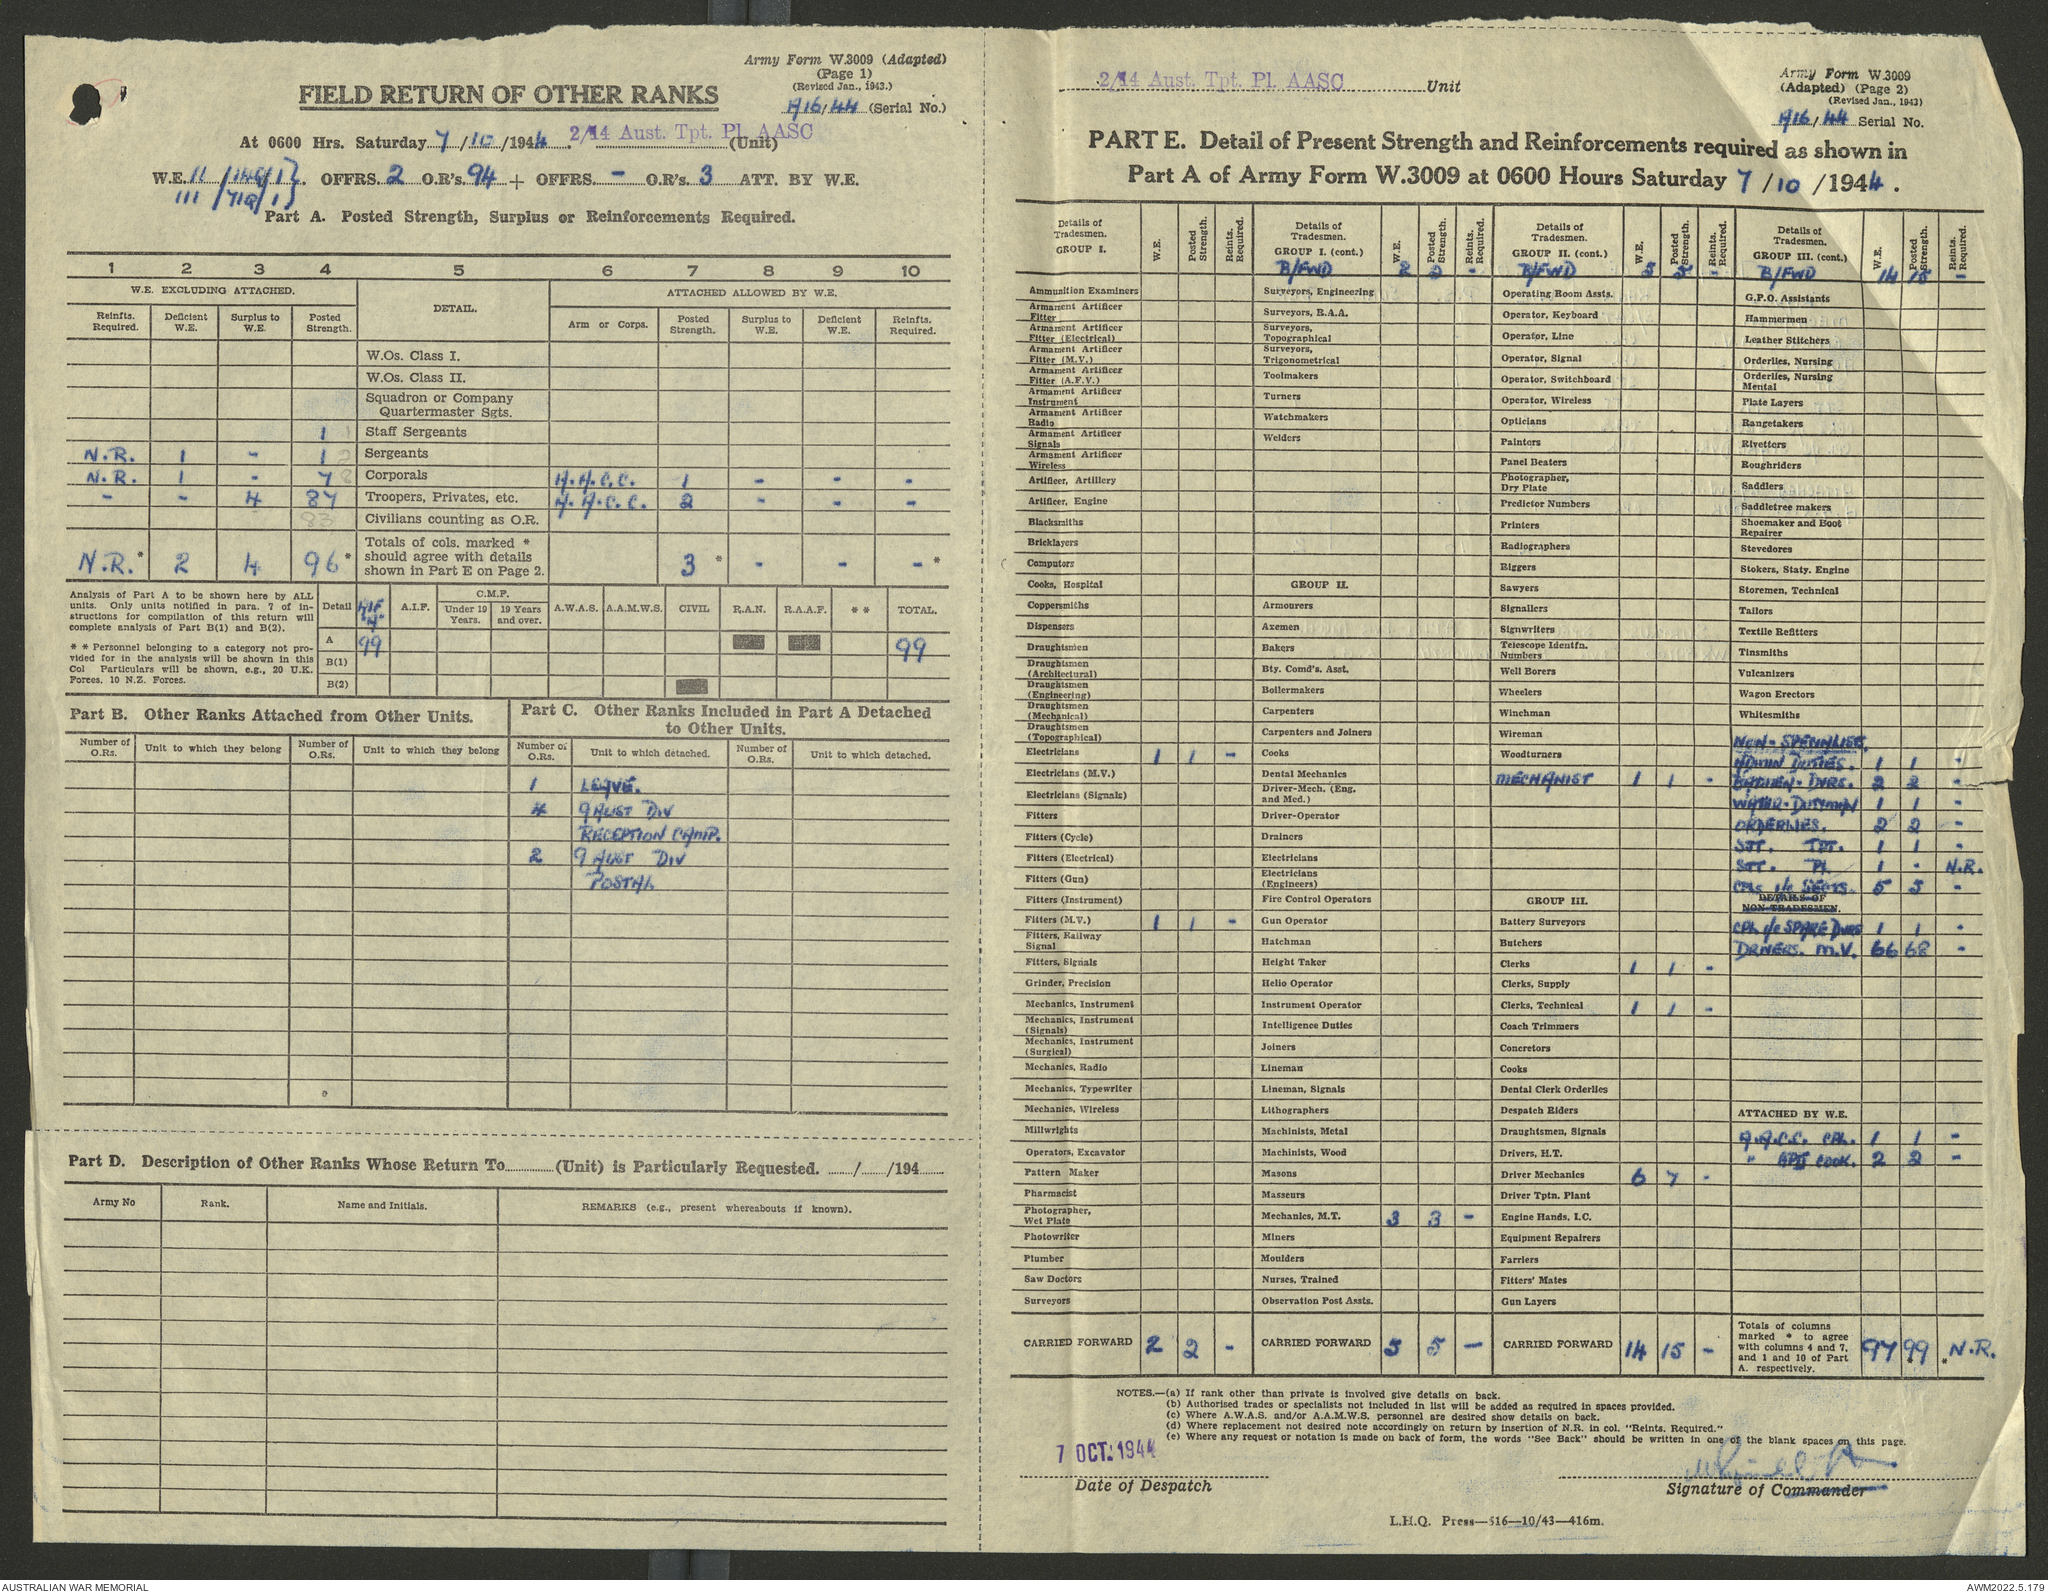 Army Form W.3009 (Adapted)
(Page 1)
(Revised Jan., 1943.)
FIELD RETURN OF OTHER RANKS
A16/44 (Serial No.)
2/14 Aust. Tpt. Pl. AASC
At 0600 Hrs. Saturday 7/10/1944. (Unit)
W.E. 11 OFFRS. 2 O.R's. 94 + OFFRS. - O.R's. 3 ATT. BY W.E.
111
Part A. Posted Strength, Surplus or Reinforcements Required.
1 2 3 4 5 6 7 8 9 10
W.E. EXCLUDING ATTACHED. DETAIL. ATTACHED ALLOWED BY W.E.
Reinfts. Required. Deficient W.E. Surplus to W.E. Posted Strength. Arm or Corps. Posted Strength. Surplus to W.E. Deficient W.E. Reinfts. Required.
W.Os. Class I.
W.Os. Class II.
Squadron or Company
Quartermaster Sgts.
1 Staff Sergeants
N.R. 1 - 1 Sergeants
N.R. 1 - 7 8 Corporals A.A.C.C. 1 - - -
- - 4 87 Troopers, Privates, etc. A.A.C.C. 2 - - -
83 Civilians counting as O.R.
N.R.* 2 4 96* Totals of cols. marked *
should agree with details
shown in Part E on Page 2. 3 * - - - *
Analysis of Part A to be shown here by ALL
units. Only units notified in para. 7 of in-
structions for compilation of this return will
complete analysis of Part B(1) and B(2).
* * Personnel belonging to a category not pro-
vided for in the analysis will be shown in this
Col Particulars will be shown, e.g., 20 U.K.
Forces. 10 N.Z. Forces.
Detail AIF A.I.F. C.M.F. Under 19 Years. 19 Years and over. A.W.A.S. A.A.M.W.S. CIVIL R.A.N. R.A.A.F. * * TOTAL.
A 99 99
B(1)
B(2)
Part B. Other Ranks Attached from Other Units.
Number of O.Rs. Unit to which they belong Number of O.Rs. Unit to which they belong
Part C. Other Ranks Included in Part A Detached
to Other Units.
Number of O.Rs. Unit to which detached. Number of O.Rs. Unit to which detached.
1 LEAVE.
4 9 AUST DIV
RECEPTION CAMP.
2 9 AUST DIV
POSTAL
Part D. Description of Other Ranks Whose Return To (Unit) is Particularly Requested. / /194
Army No Rank. Name and Initials. REMARKS (e.g., present whereabouts if known).
2/14 Aust. Tpt. Pl. AASC Unit
Army Form W.3009
(Adapted) (Page 2)
(Revised Jan., 1943)
A16/44 Serial No.
PART E. Detail of Present Strength and Reinforcements required as shown in
Part A of Army Form W.3009 at 0600 Hours Saturday 7/10/1944.
Details of Tradesmen. GROUP I. W.E. Posted Strength. Reints. Required.
Ammunition Examiners
Armament Artificer Fitter
Armament Artificer Fitter (Electrical)
Armament Artificer Fitter (M.V.)
Armament Artificer Fitter (A.F.V.)
Armament Artificer Instrument
Armament Artificer Radio
Armament Artificer Signals
Armament Artificer Wireless
Artificer, Artillery
Artificer, Engine
Blacksmiths
Bricklayers
Computors
Cooks, Hospital
Coppersmiths
Dispensers
Draughtsmen
Draughtsmen (Architectural)
Draughtsmen (Engineering)
Draughtsmen (Mechanical)
Draughtsmen (Topographical)
Electricians 1 1 -
Electricians (M.V.)
Electricians (Signals)
Fitters
Fitters (Cycle)
Fitters (Electrical)
Fitters (Gun)
Fitters (Instrument)
Fitters (M.V.) 1 1 -
Fitters, Railway Signal
Fitters, Signals
Grinder, Precision
Mechanics, Instrument
Mechanics, Instrument (Signals)
Mechanics, Instrument (Surgical)
Mechanics, Radio
Mechanics, Typewriter
Mechanics, Wireless
Millwrights
Operators, Excavator
Pattern Maker
Pharmacist
Photographer, Wet Plate
Photowriter
Plumber
Saw Doctors
Surveyors
CARRIED FORWARD 2 2 -
Details of Tradesmen. GROUP I. (cont.) W.E. Posted Strength. Reints. Required.
B/FWD 2 2 -
Surveyors, Engineering
Surveyors, R.A.A.
Surveyors, Topographical
Surveyors, Trigonometrical
Toolmakers
Turners
Watchmakers
Welders
GROUP II.
Armourers
Axemen
Bakers
Bty. Comd's. Asst.
Boilermakers
Carpenters
Carpenters and Joiners
Cooks
Dental Mechanics
Driver-Mech. (Eng. and Med.)
Driver-Operator
Drainers
Electricians
Electricians (Engineers)
Fire Control Operators
Gun Operator
Hatchman
Height Taker
Helio Operator
Instrument Operator
Intelligence Duties
Joiners
Lineman
Lineman, Signals
Lithographers
Machinists, Metal
Machinists, Wood
Masons
Masseurs
Mechanics, M.T. 3 3 -
Miners
Moulders
Nurses, Trained
Observation Post Assts.
CARRIED FORWARD 5 5 -
Details of Tradesmen. GROUP II. (cont.) W.E. Posted Strength. Reints. Required.
B/FWD 5 5 -
Operating Room Assts.
Operator, Keyboard
Operator, Line
Operator, Signal
Operator, Switchboard
Operator, Wireless
Opticians
Painters
Panel Beaters
Photographer, Dry Plate
Predictor Numbers
Printers
Radiographers
Riggers
Sawyers
Signallers
Signwriters
Telescope Identfn. Numbers
Well Borers
Wheelers
Winchman
Wireman
Woodturners
MECHANIST 1 1 -
GROUP III.
Battery Surveyors
Butchers
Clerks 1 1 -
Clerks, Supply
Clerks, Technical 1 1 -
Coach Trimmers
Concretors
Cooks
Dental Clerk Orderlies
Despatch Riders
Draughtsmen, Signals
Drivers, H.T.
Driver Mechanics 6 7 -
Driver Tptn. Plant
Engine Hands, I.C.
Equipment Repairers
Farriers
Fitters' Mates
Gun Layers
CARRIED FORWARD 14 15 -
Details of Tradesmen. GROUP III. (cont.) W.E. Posted Strength. Reints. Required.
B/FWD 14 15 -
G.P.O. Assistants
Hammermen
Leather Stitchers
Orderlies, Nursing
Orderlies, Nursing Mental
Plate Layers
Rangetakers
Rivetters
Roughriders
Saddlers
Saddletree makers
Shoemaker and Boot Repairer
Stevedores
Stokers, Staty. Engine
Storemen, Technical
Tailors
Textile Refitters
Tinsmiths
Vulcanizers
Wagon Erectors
Whitesmiths
NON-SPECIALISE.
ADMIN DUTIES. 1 1 -
BATMEN-DVRS. 2 2 -
WATER-DUTYMAN 1 1 -
ORDERLIES. 2 2 -
SJT. TPT. 1 1 -
SJT. Pl. 1 - N.R.
CPLs i/c SECTS. 5 5 -
DETAILS OF
NON-TRADESMEN.
CPL i/c SPARE DVRS 1 1 -
DRIVERS. M.V. 66 68 -
ATTACHED BY W.E.
A.A.C.C. CPL. 1 1 -
" COOK. 2 2 -
Totals of columns
marked * to agree
with columns 4 and 7,
and 1 and 10 of Part
A. respectively. 97 99 * N.R.
NOTES.—(a) If rank other than private is involved give details on back.
(b) Authorised trades or specialists not included in list will be added as required in spaces provided.
(c) Where A.W.A.S. and/or A.A.M.W.S. personnel are desired show details on back.
(d) Where replacement not desired note accordingly on return by insertion of N.R. in col. "Reints. Required."
(e) Where any request or notation is made on back of form, the words "See Back" should be written in one of the blank spaces on this page.
7 OCT. 1944
Date of Despatch
Signature of Commander
L.H.Q. Press—516—10/43—416m.
AUSTRALIAN WAR MEMORIAL
AWM2022.5.179